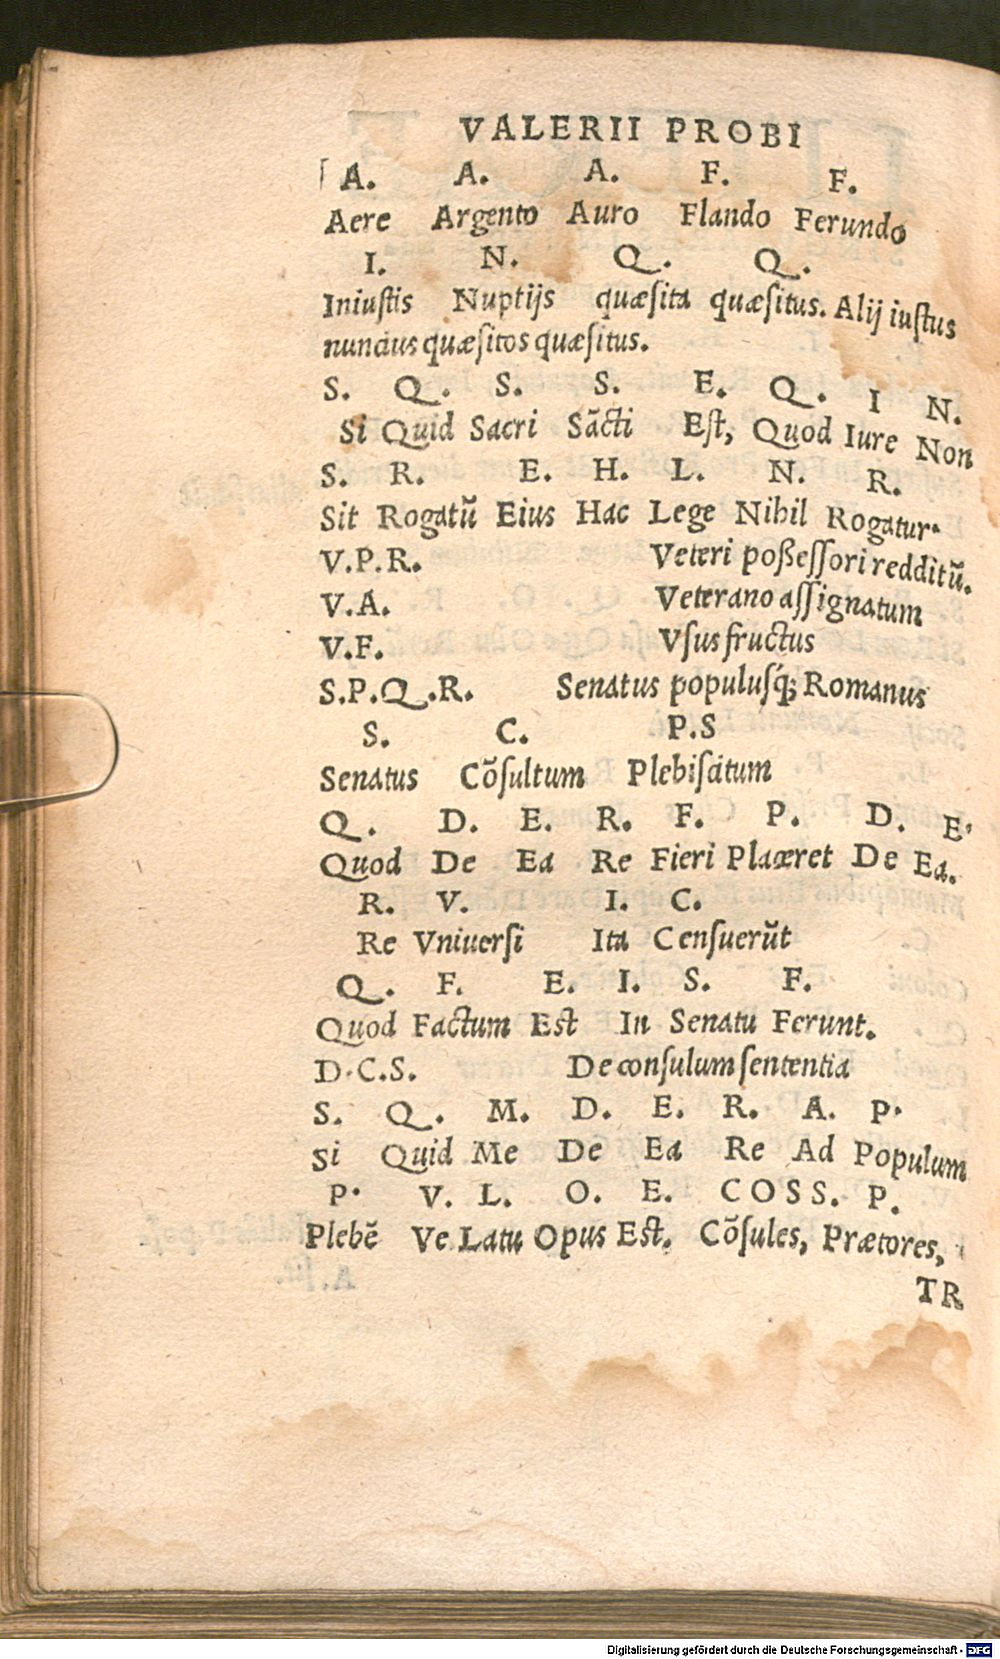 VALERII PROBI
A. A. A. F. F.
Aere Argento Auro Flando Ferundo
I. N. Q. Q.
Iniustis Nuptijs quæsita quæsitus. Alij iustus
nuncius quæsitos quæsitus.
S. Q. S. S. E. Q. I N.
Si Quid Sacri Sācti Est, Quod Iure Non
S. R. E. H. L. N. R.
Sit Rogatū Eius Hac Lege Nihil Rogatur.
V.P.R. Veteri poßessori redditū.
V.A. Veterano assignatum
V.F. Vsusfructus
S.P.Q.R. Senatus populusq́; Romanus
S. C. P.S
Senatus Cōsultum Plebiscitum
Q. D. E. R. F. P. D. E.
Quod De Ea Re Fieri Placeret De Ea.
R. V. I. C.
Re Vniuersi Ita Censuerūt
Q. F. E. I. S. F.
Quod Factum Est In Senatu Ferunt.
D.C.S. De consulum sententia
S. Q. M. D. E. R. A. P.
Si Quid Me De Ea Re Ad Populum
P. V. L. O. E. COSS. P.
Plebē Ve Latu Opus Est. Cōsules, Prætores,
TR
Digitalisierung gefördert durch die Deutsche Forschungsgemeinschaft - DFG